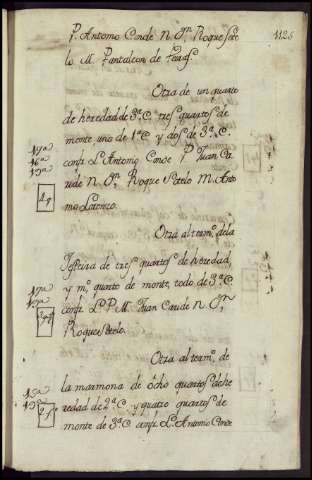 P. Antonio Conde N. Jn. Roque Sote
lo M. Pantaleon de
1125
Otra de un quarto
de heredad de 3ª C. tres quartos de
monte, uno de 1ª C. y dos de 3ª C.
confi. L. Antonio Conde P. Juan Ca
ride N. Jn. Roque Sotelo M. Anto
nio Lorenzo.
Otra al termo. de la
de tres quartos de heredad,
y mo. quarto de monte, todo de 3ª C.
confi. L. P. M. Juan Caride N. Jn.
Roque Sotelo.
Otra al termo. de
la marmona de ocho quartos de he
redad de 2ª C. y quatro quartos de
monte de 3ª C. confi. L. Antonio Conde